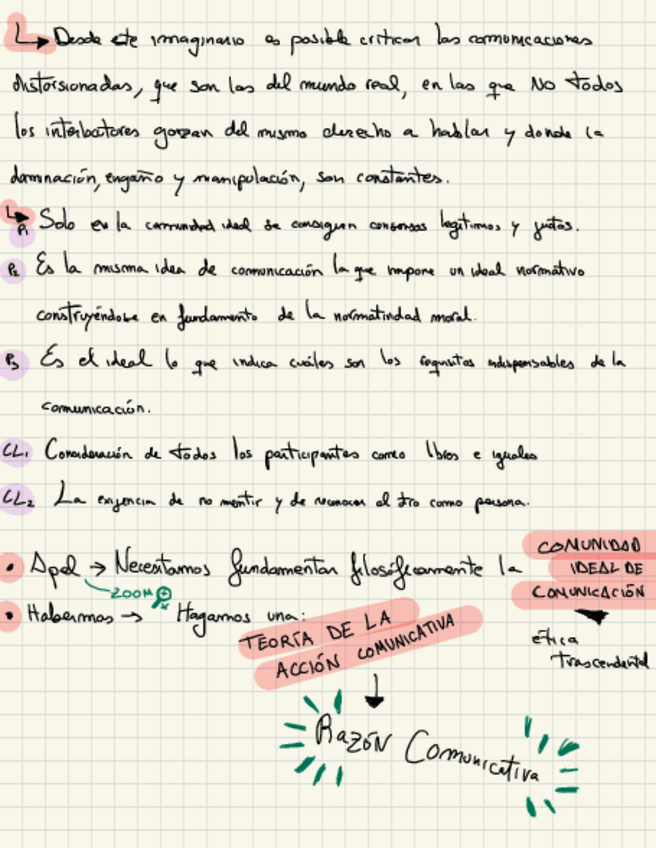 Desde este imaginario es posible criticar las comunicaciones
distorsionadas, que son las del mundo real, en las que NO todos
los interlocutores gozan del mismo derecho a hablar y donde la
dominación, engaño y manipulación, son constantes.
P1 Solo en la comunidad ideal se consiguen consensos legítimos y justos.
P2 Es la misma idea de comunicación la que impone un ideal normativo
construyéndose en fundamento de la normatividad moral.
P3 Es el ideal lo que indica cuáles son los requisitos indispensables de la
comunicación.
CL1 Consideración de todos los participantes como libres e iguales
CL2 La exigencia de no mentir y de reconocer al otro como persona.
COMUNIDAD
• Apel → Necesitamos fundamentar filosóficamente la IDEAL DE
ZOOM COMUNICACIÓN
• Habermas → Hagamos una:
TEORÍA DE LA
ACCIÓN COMUNICATIVA
ética
trascendental
Razón Comunicativa